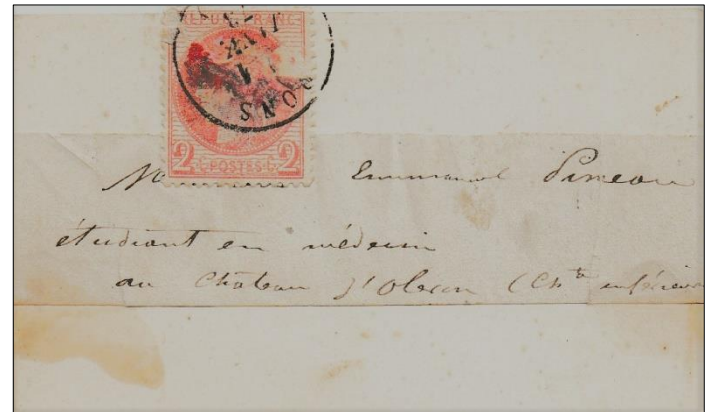 REPUB FRANC
2 POSTES 2
PONS
1
JANV
73
M Emmanuel Pineau
étudiant en médecin
au Château d'Oleron (Chte inférieure